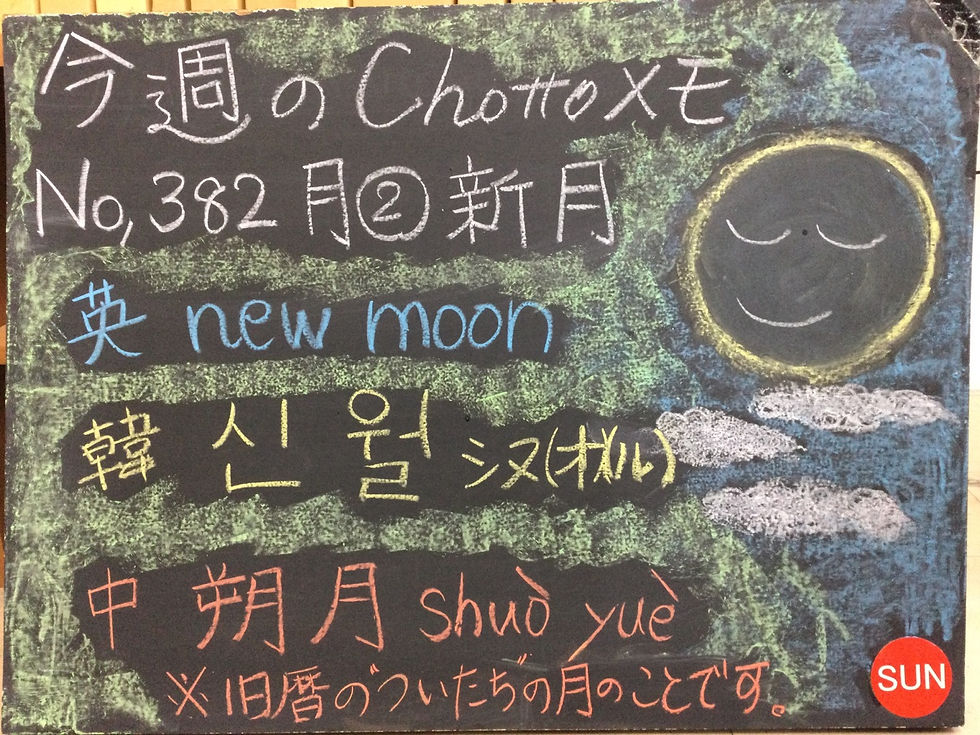 今週のChottoメモ
No,382 月②新月
英 new moon
韓 신월 シヌ(オ)ル)
中 朔月 shuò yuè
※旧暦の"ついたち"の月のことです。
SUN